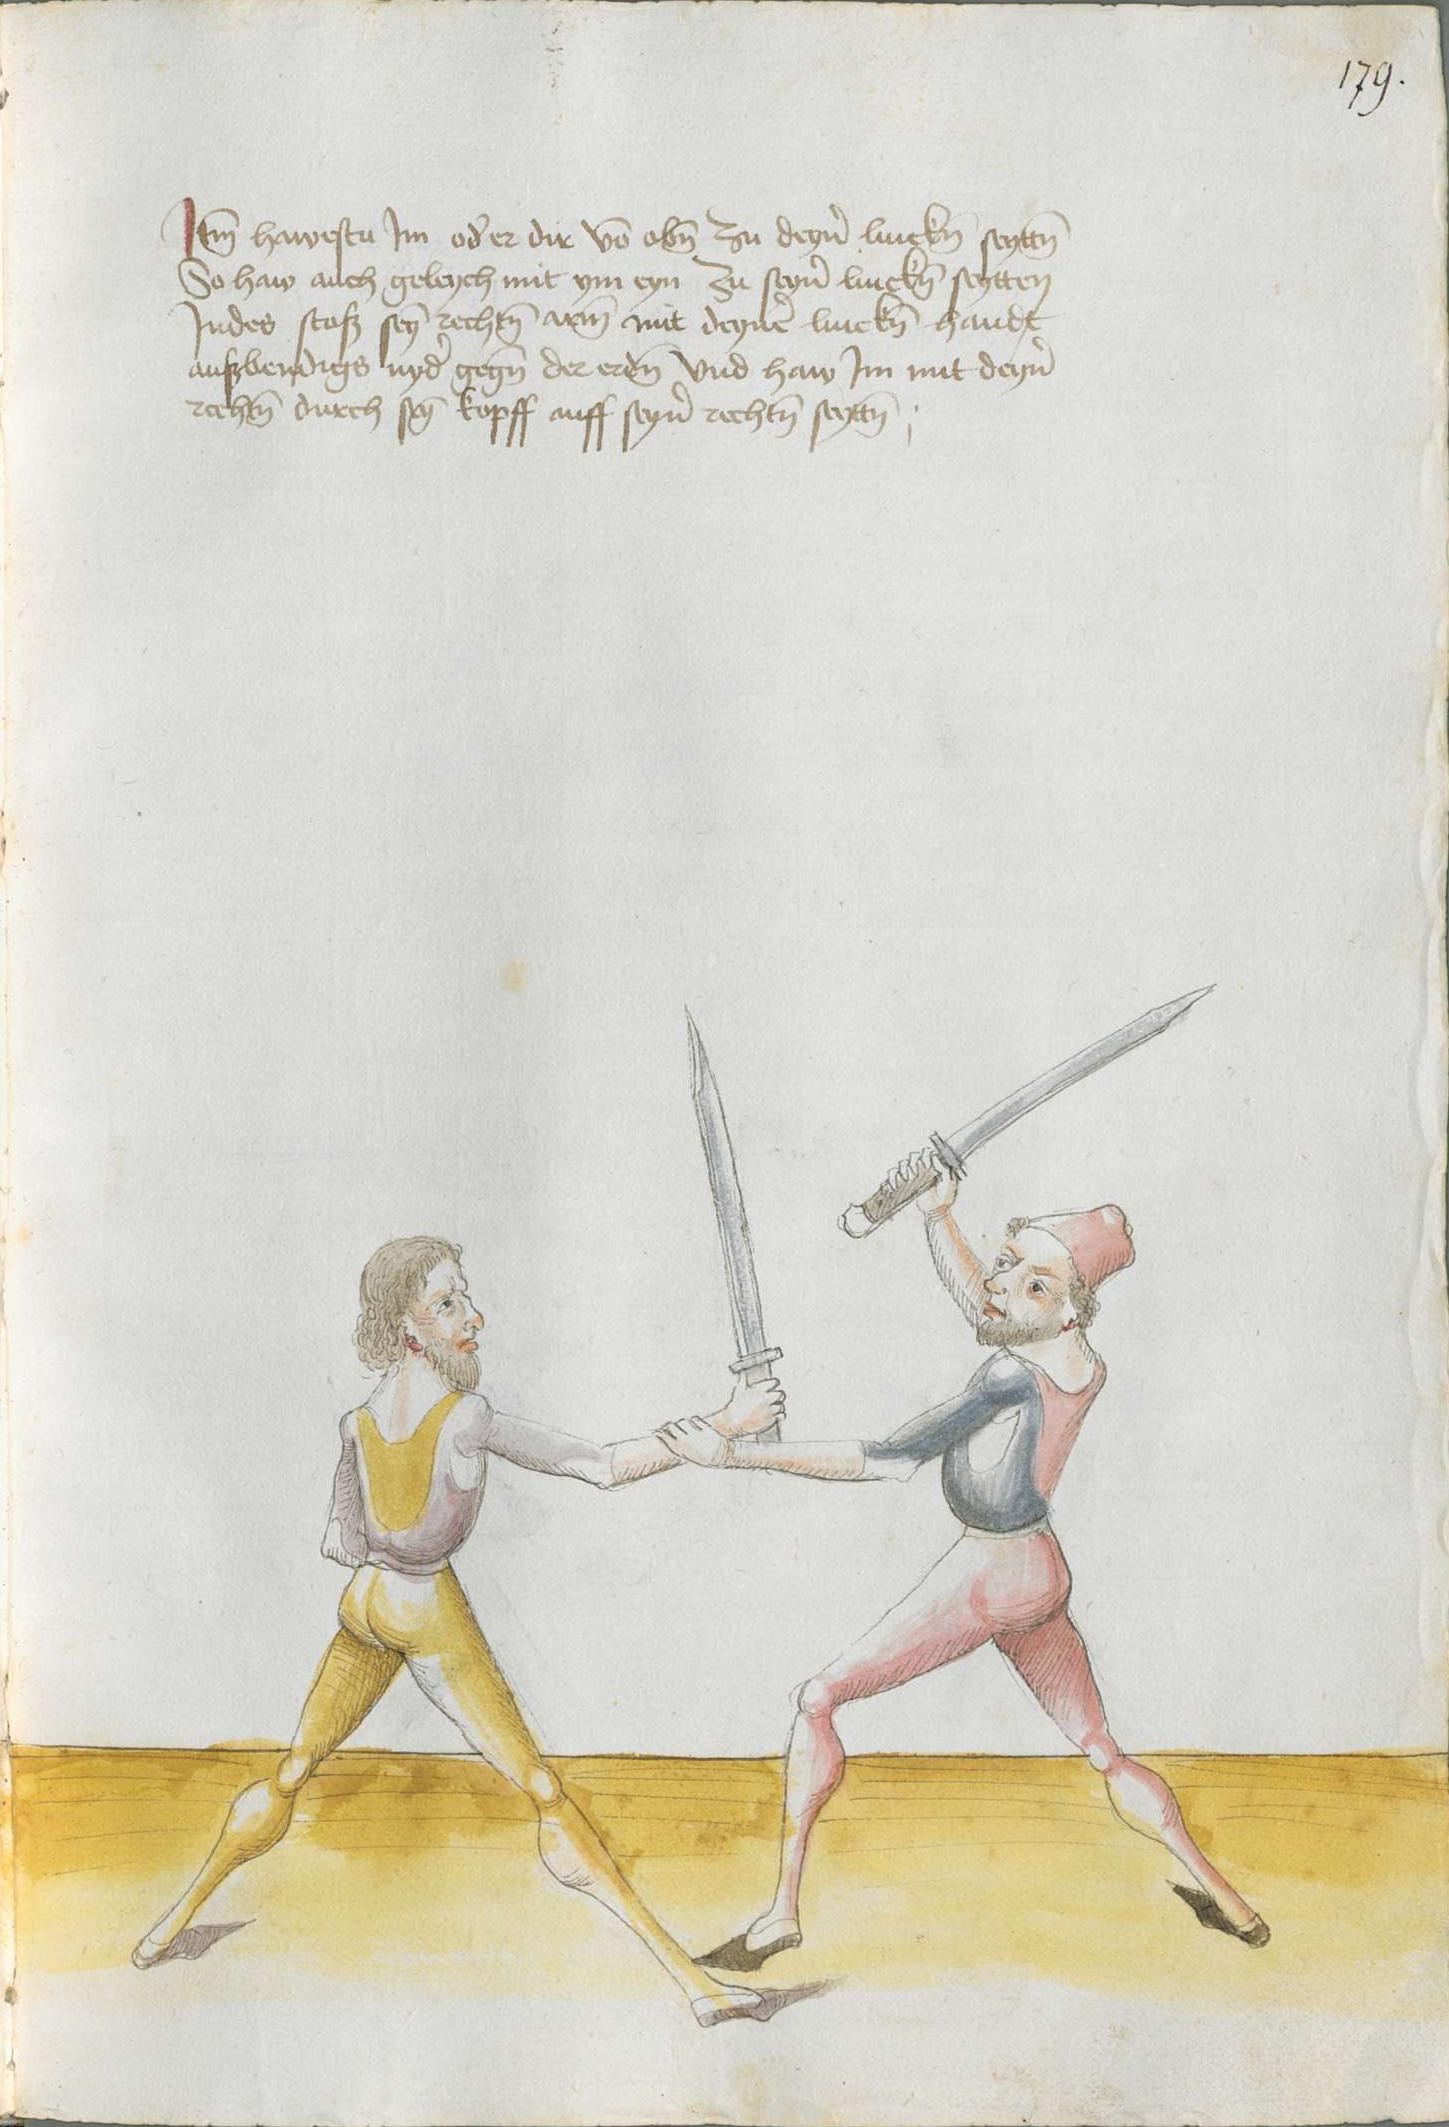 179.
Itm̄ hawestu Im od̕ er dir vō obñ Zu deyn̕ linckñ seyttñ
So haw auch geleych mit ym eyn Zu seyn̕ linckñ seytten
Indes stosz seȳ rechtñ armm̄ mit deyne̕ linckñ handt
auszbendigs nyd̕ gegñ der erdñ Vnd haw Im mit deyn̕
rechtñ durch seȳ kopff auff seyn̕ rechtñ seyttñ ;